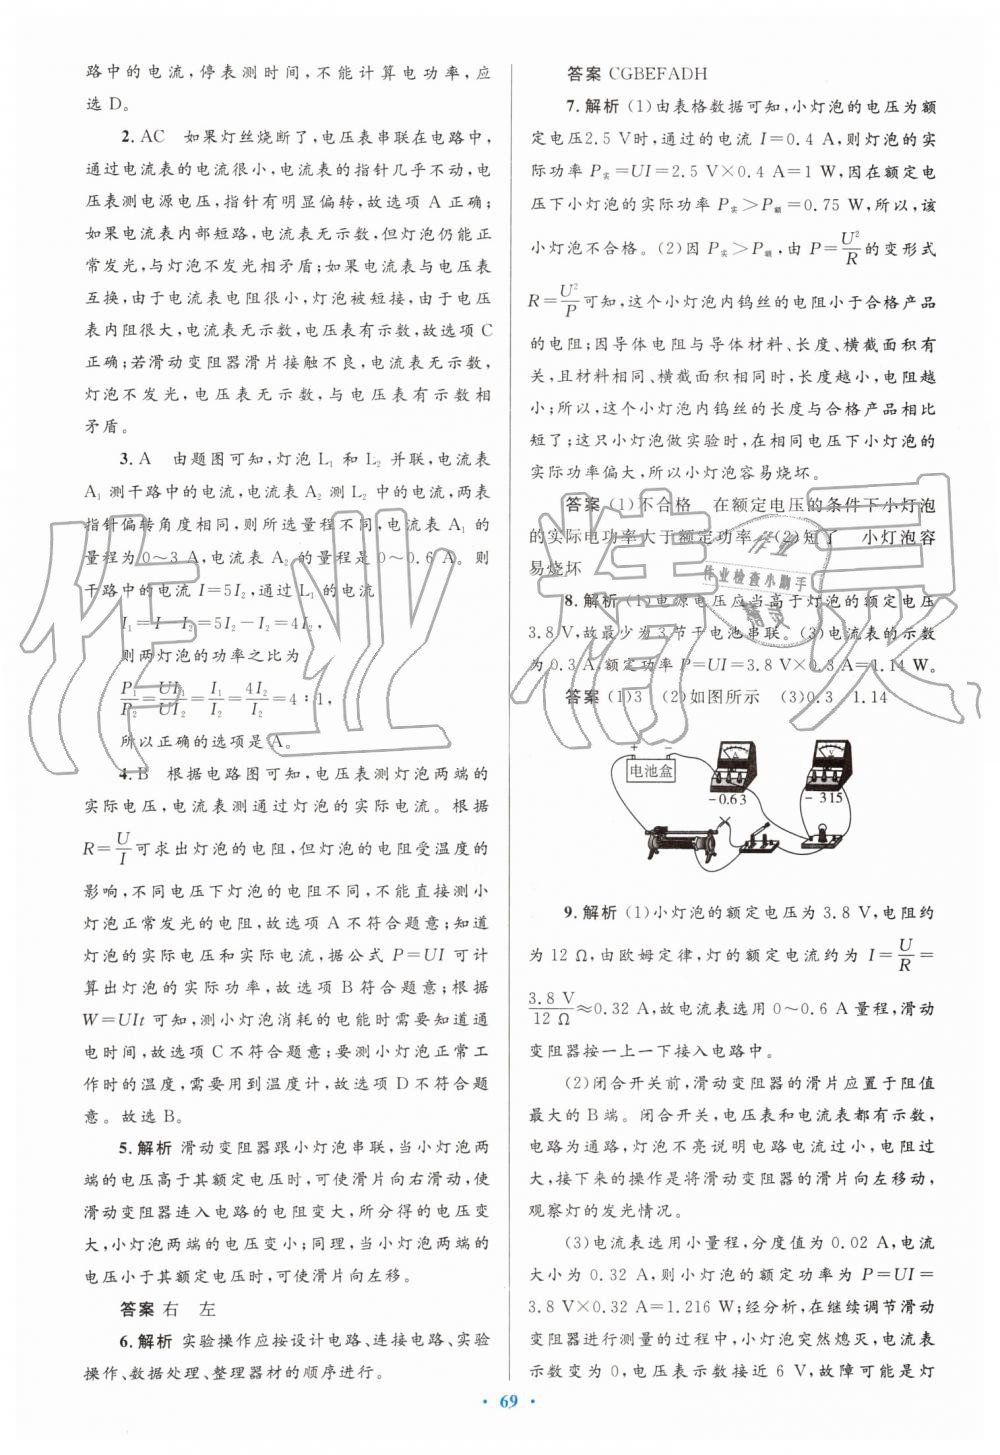 路中的电流,停表测时间,不能计算电功率,应
选 D。
2. AC 如果灯丝烧断了,电压表串联在电路中,
通过电流表的电流很小,电流表的指针几乎不动,电
压表测电源电压,指针有明显偏转,故选项 A 正确;
如果电流表内部短路,电流表无示数,但灯泡仍能正
常发光,与灯泡不发光相矛盾;如果电流表与电压表
互换,由于电流表电阻很小,灯泡被短接,由于电压
表内阻很大,电流表无示数,电压表有示数,故选项 C
正确;若滑动变阻器滑片接触不良,电流表无示数,
灯泡不发光,电压表无示数,与电压表有示数相
矛盾。
3. A 由题图可知,灯泡 L₁ 和 L₂ 并联,电流表
A₁ 测干路中的电流,电流表 A₂ 测 L₂ 中的电流,两表
指针偏转角度相同,则所选量程不同,电流表 A₁ 的
量程为 0~3 A,电流表 A₂ 的量程是 0~0.6 A。则
干路中的电流 I=5I₂,通过 L₁的电流
I₁=I-I₂=5I₂-I₂=4I₂,
则两灯泡的功率之比为
P₁/P₂=UI₁/UI₂=I₁/I₂=4I₂/I₂=4∶1,
所以正确的选项是 A。
4. B 根据电路图可知,电压表测灯泡两端的
实际电压,电流表测通过灯泡的实际电流。根据
R=U/I可求出灯泡的电阻,但灯泡的电阻受温度的
影响,不同电压下灯泡的电阻不同,不能直接测小
灯泡正常发光的电阻,故选项 A 不符合题意;知道
灯泡的实际电压和实际电流,据公式 P=UI 可计
算出灯泡的实际功率,故选项 B 符合题意;根据
W=UIt 可知,测小灯泡消耗的电能时需要知道通
电时间,故选项 C 不符合题意;要测小灯泡正常工
作时的温度,需要用到温度计,故选项 D 不符合题
意。故选 B。
5. 解析 滑动变阻器跟小灯泡串联,当小灯泡两
端的电压高于其额定电压时,可使滑片向右滑动,使
滑动变阻器连入电路的电阻变大,所分得的电压变
大,小灯泡两端的电压变小;同理,当小灯泡两端的
电压小于其额定电压时,可使滑片向左移。
答案 右 左
6. 解析 实验操作应按设计电路、连接电路、实验
操作、数据处理、整理器材的顺序进行。
答案 CGBEFADH
7. 解析 (1)由表格数据可知,小灯泡的电压为额
定电压2.5 V时,通过的电流 I=0.4 A,则灯泡的实
际功率 P实=UI=2.5 V×0.4 A=1 W,因在额定电
压下小灯泡的实际功率 P实>P额=0.75 W,所以,该
小灯泡不合格。(2)因 P实>P额,由 P=U²/R的变形式
R=U²/P可知,这个小灯泡内钨丝的电阻小于合格产品
的电阻;因导体电阻与导体材料、长度、横截面积有
关,且材料相同、横截面积相同时,长度越小,电阻越
小;所以,这个小灯泡内钨丝的长度与合格产品相比
短了;这只小灯泡做实验时,在相同电压下小灯泡的
实际功率偏大,所以小灯泡容易烧坏。
答案 (1)不合格 在额定电压的条件下小灯泡
的实际电功率大于额定功率 (2)短了 小灯泡容
易烧坏
8. 解析 (1)电源电压应当高于灯泡的额定电压
3.8 V,故最少为 3 节干电池串联。(3)电流表的示数
为 0.3 A,额定功率 P=UI=3.8 V×0.3 A=1.14 W。
答案 (1)3 (2)如图所示 (3)0.3 1.14
+ -
电池盒
A
V
-0.63
- 315
9. 解析 (1)小灯泡的额定电压为 3.8 V,电阻约
为 12 Ω,由欧姆定律,灯的额定电流约为 I=U/R=
3.8 V/12 Ω≈0.32 A,故电流表选用 0~0.6 A 量程,滑动
变阻器按一上一下接入电路中。
(2)闭合开关前,滑动变阻器的滑片应置于阻值
最大的 B 端。闭合开关,电压表和电流表都有示数,
电路为通路,灯泡不亮说明电路电流过小,电阻过
大,接下来的操作是将滑动变阻器的滑片向左移动,
观察灯的发光情况。
(3)电流表选用小量程,分度值为 0.02 A,电流
大小为 0.32 A,则小灯泡的额定功率为 P=UI=
3.8 V×0.32 A=1.216 W;经分析,在继续调节滑动
变阻器进行测量的过程中,小灯泡突然熄灭,电流表
示数变为 0,电压表示数接近 6 V,故障可能是灯
· 69 ·
作业精灵
作业
作业检查小助手
精灵